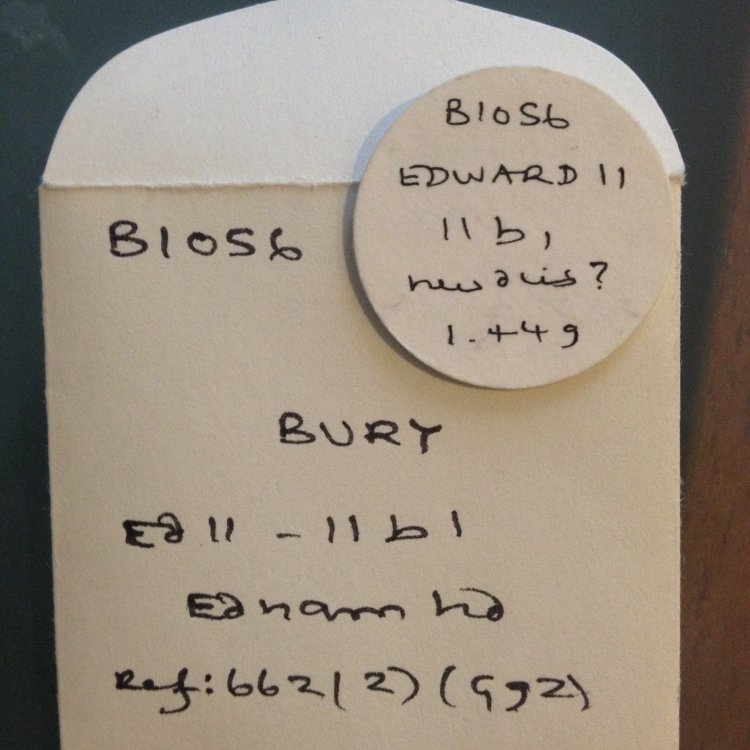 B1056
EDWARD II
11b1
new dies?
1.44g
B1056
BURY
Ed II - 11b1
Ednam hd
Ref: 662(2)